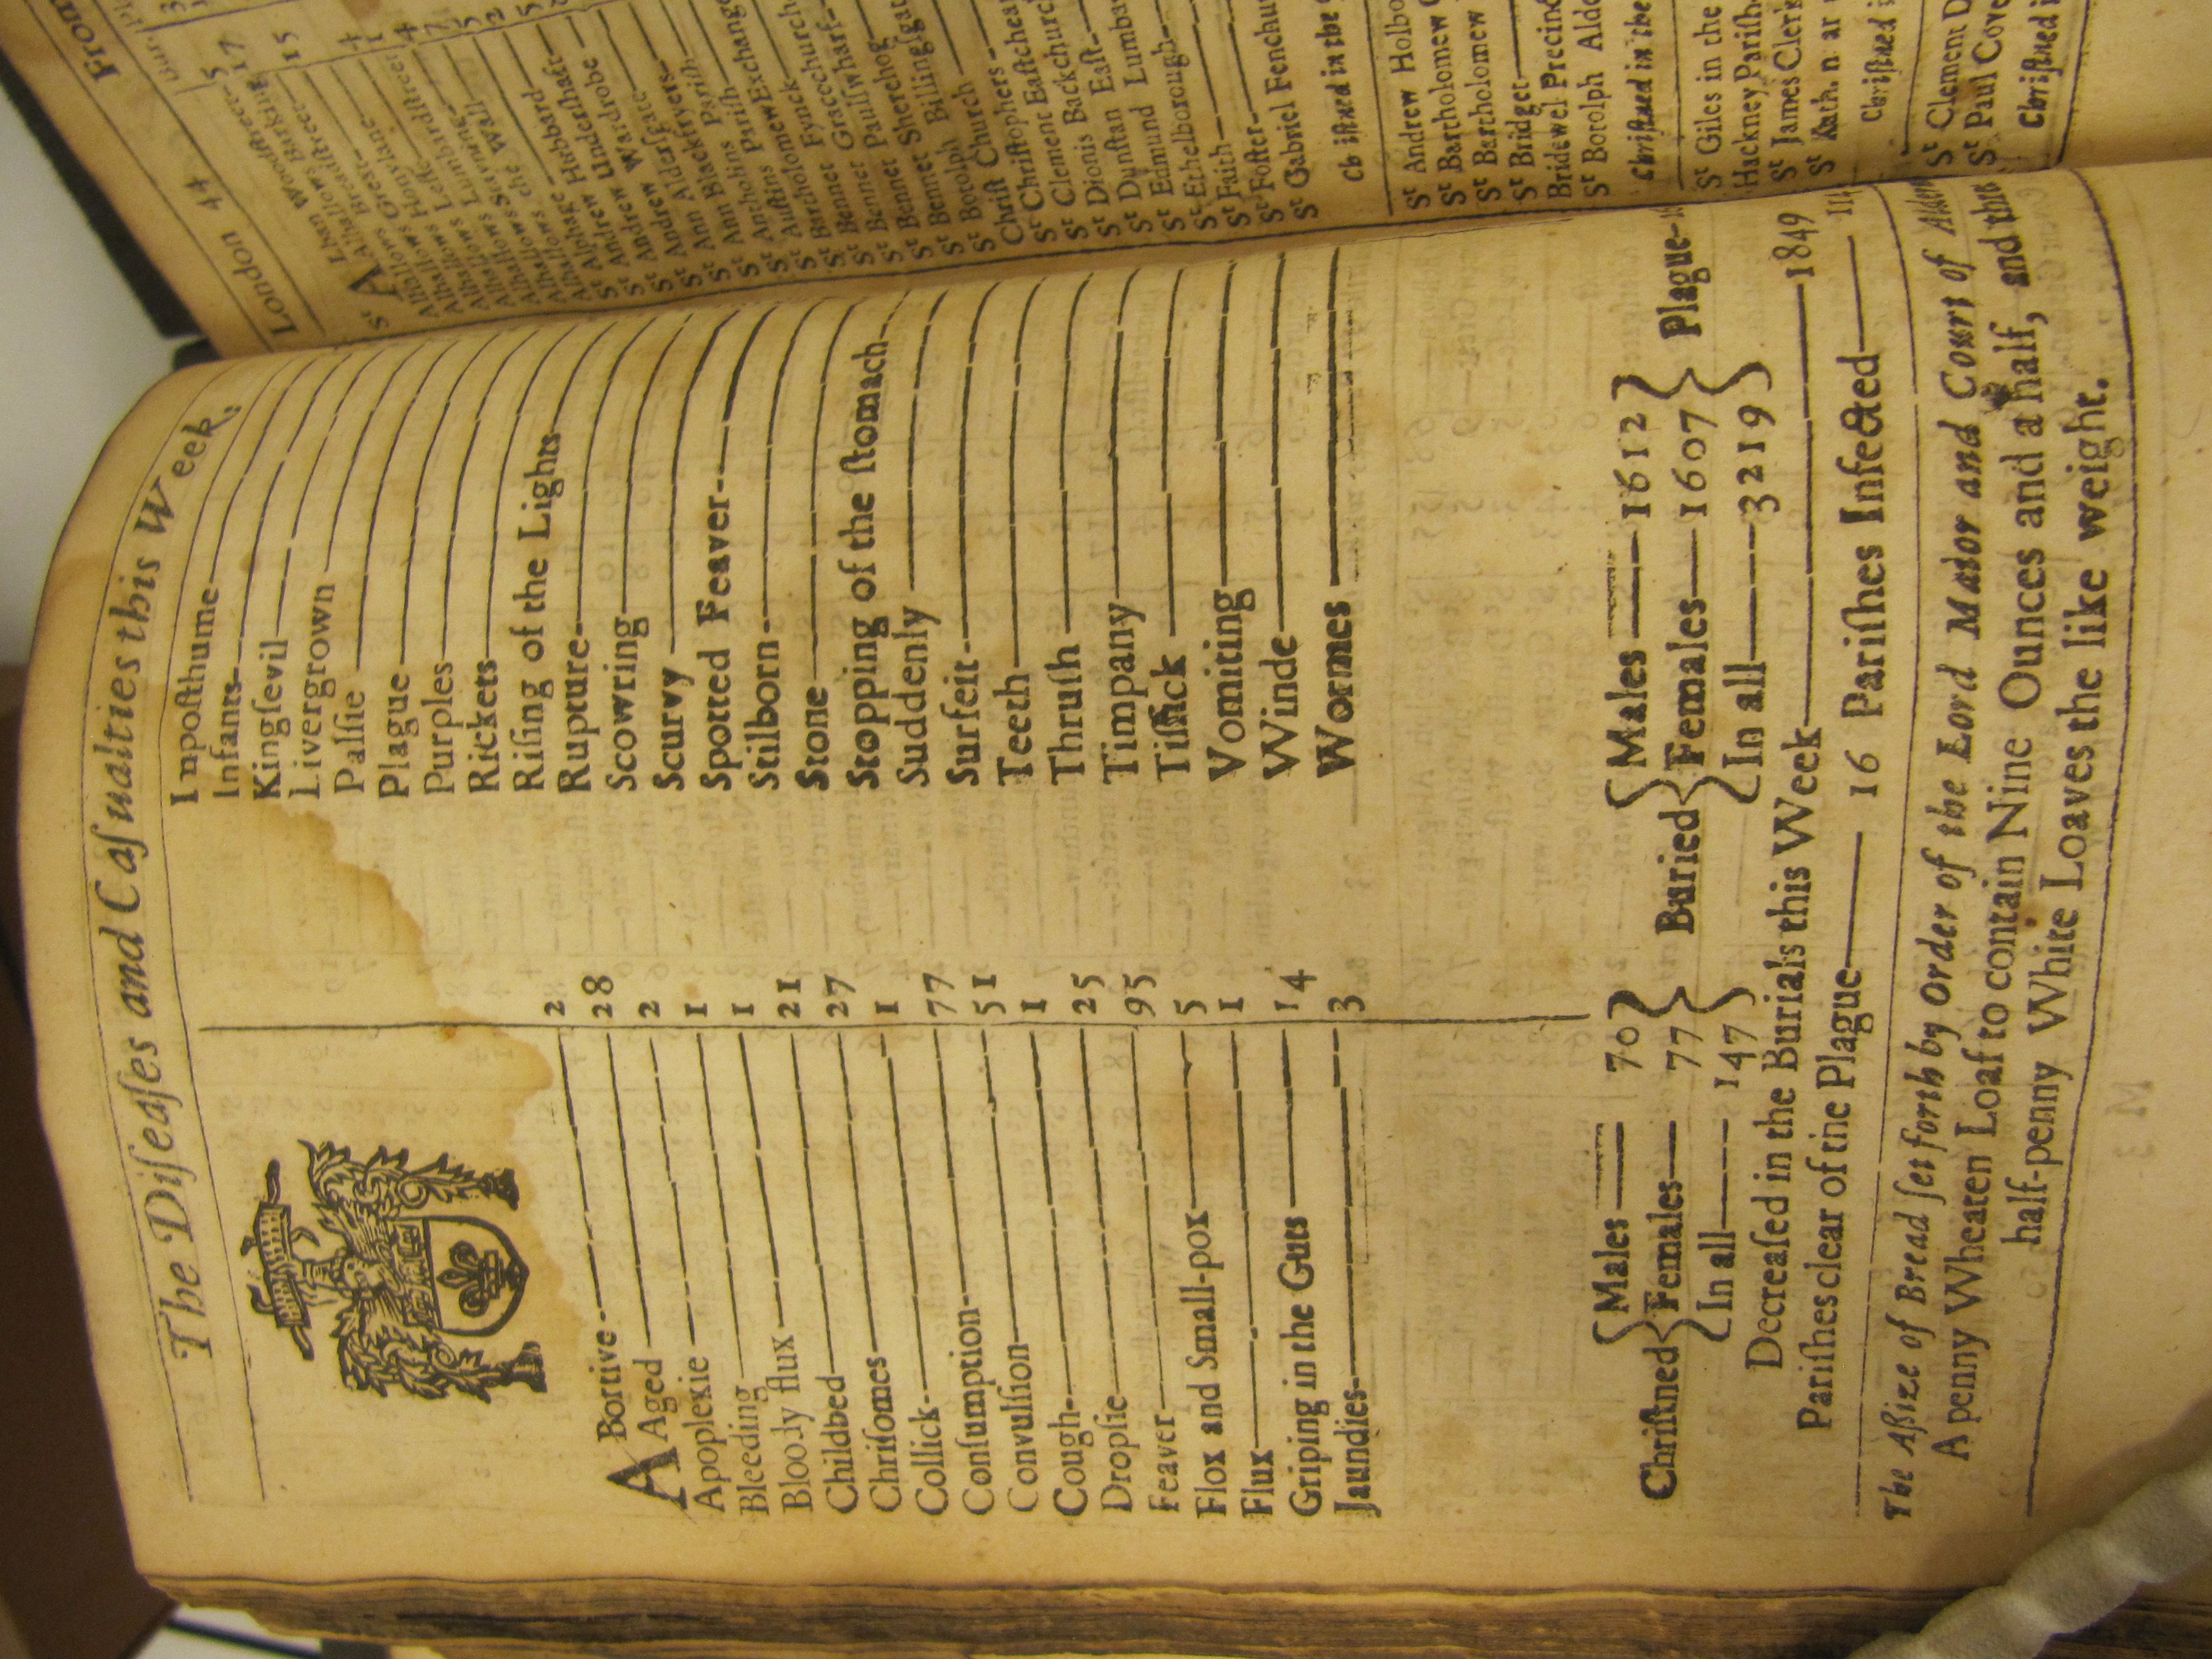 The Diſeaſes and Caſualties this Week.
ABortive 2
Aged 28
Apoplexie 2
Bleeding 1
Bloody flux 1
Childbed 21
Chriſomes 27
Collick 1
Conſumption 77
Convulſion 51
Cough 1
Dropſie 25
Feaver 95
Flox and Small-pox 5
Flux 1
Griping in the Guts 14
Jaundies 3
Impoſthume
Infants
Kingſevil
Livergrown
Palſie
Plague
Purples
Rickets
Riſing of the Lights
Rupture
Scowring
Scurvy
Spotted Feaver
Stilborn
Stone
Stopping of the ſtomach
Suddenly
Surfeit
Teeth
Thruſh
Timpany
Tiſſick
Vomiting
Winde
Wormes
Chriſtned { Males 70 Females 77 In all 147 }
Buried { Males 1612 Females 1607 In all 3219 } Plague
Decreaſed in the Burials this Week 1849
Pariſhes clear of the Plague 16 Pariſhes Infected
The Aſſize of Bread ſet forth by Order of the Lord Maior and Court of
A penny Wheaten Loaf to contain Nine Ounces and a half, and
half-penny White Loaves the like weight.
London 44
From
St
ALban Woodſtreet 5
Alhallows Barking 17
Alhallows Breadſtreet 15
Alhallows Great
Alhallows Honylane
Alhallows Leſſe
Alhallows Lumbardſtreet
Alhallows Stayning
Alhallows the Wall
St Alphage
St Andrew Hubbard
St Andrew Underſhaft
St Andrew Wardrobe
St Ann Alderſgate
St Ann Blackfryers
St Antholins Pariſh
St Auſtins Pariſh
St Bartholomew Exchange
St Bennet Fynck
St Bennet Gracechurch
St Bennet Paulſwharf
St Bennet Sherehog
St Botolph Billingſgate
Chriſt Church
St Chriſtophers
St Clement Eaſtcheap
St Dionis Backchurch
St Dunſtan Eaſt
St Edmund Lumbar
St Ethelborough
St Faith
St Foſter
St Gabriel Fenchu
in the
St Andrew Holbo
St Bartholomew
St Bartholomew
St Bridget
Bridewel Precinc
St Botolph Alde
Chriſtned in the
St Giles in the
Hackney Pariſh
St James Clerk
St Kath.
Chriſtned i
St Clement D
St Paul Cove
Chriſtned i